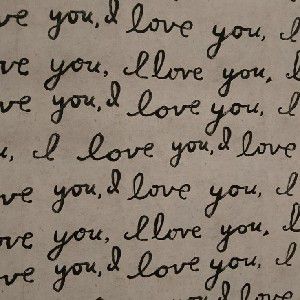 ve you, I love you, I
ve you, I love you, I
ve you, I love you, I
u, I love you, I love
ve you, I love you, I
ve you, I love you, I
ve you, I love you, I